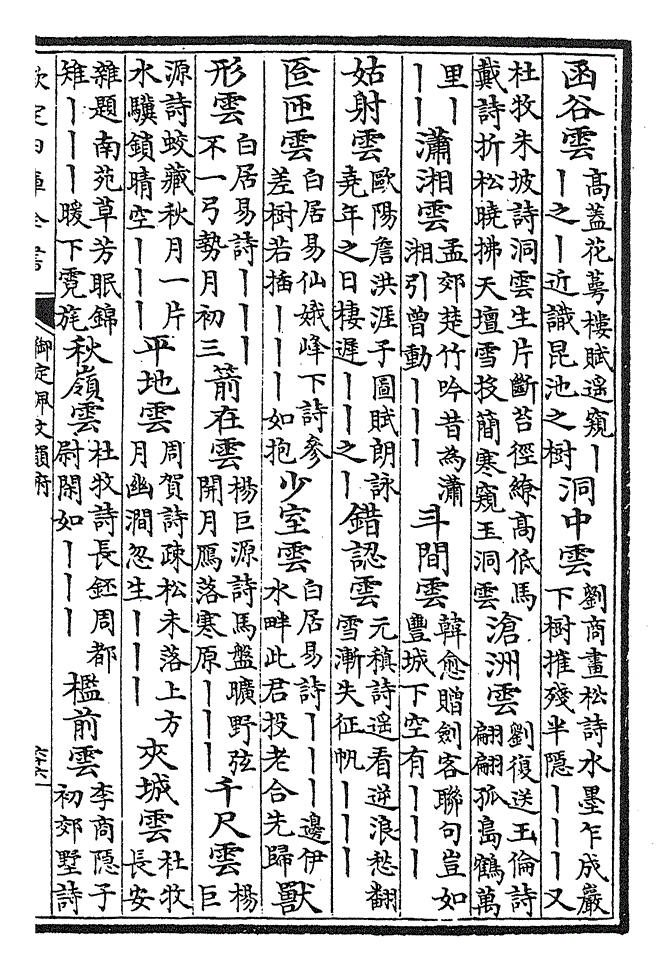 函谷雲高蓋花萼樓賦遥窺｜｜之｜近識昆池之樹洞中雲劉商畫松詩水墨乍成巖下樹摧殘半隱｜｜｜又
杜牧朱坡詩洞雲生片斷苔徑繚高低馬戴詩折松曉拂天壇雪投簡寒窺玉洞雲滄洲雲劉復送王倫詩翩翩孤島鶴萬
里｜｜｜瀟湘雲孟郊楚竹吟昔為瀟湘引曾動｜｜｜斗間雲韓愈贈劍客聯句豈如豐城下空有｜｜｜
姑射雲歐陽詹洪涯子圖賦朗詠堯年之日棲遲｜｜之｜錯認雲元稹詩遥看逆浪愁翻雪漸失征帆｜｜｜
匼匝雲白居易仙娥峰下詩參差樹若插｜｜｜如抱少室雲白居易詩｜｜｜｜邊伊水畔此君投老合先歸獸
形雲白居易詩｜｜｜不一弓勢月初三箭在雲楊巨源詩馬盤曠野弦開月鴈落寒原｜｜｜千尺雲楊巨
源詩蛟藏秋月一片水驥鎖晴空｜｜｜平地雲周賀詩疎松未落上方月幽澗忽生｜｜｜夾城雲杜牧長安
雜題南苑草芳眠錦雉｜｜｜暖下霓旄秋嶺雲杜牧詩長鈹周都尉閑如｜｜｜檻前雲李商隱子初郊墅詩
欽定四庫全書
御定佩文韻府